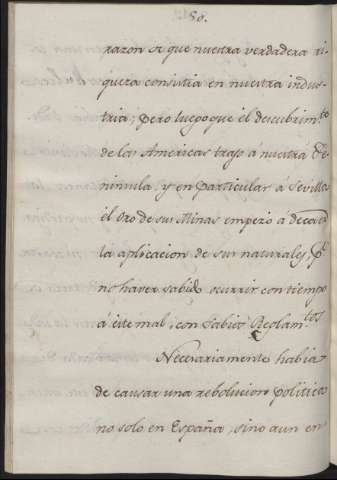 50.
razon de que nuestra verdadera ri-
queza consistia en nuestra indus-
tria; pero luego que el descubrim.to
de las Americas trajo á nuestra Pe-
ninsula, y en particular á Sevilla
el Oro de sus Minas empezó a decaer
la aplicacion de sus naturales, p.r
no haver sabido ocurrir con tiempo
á este mal, con sabios Reglam.tos
Necesariamente habia
de causar una rebolucion politica
no solo en España, sino aun en